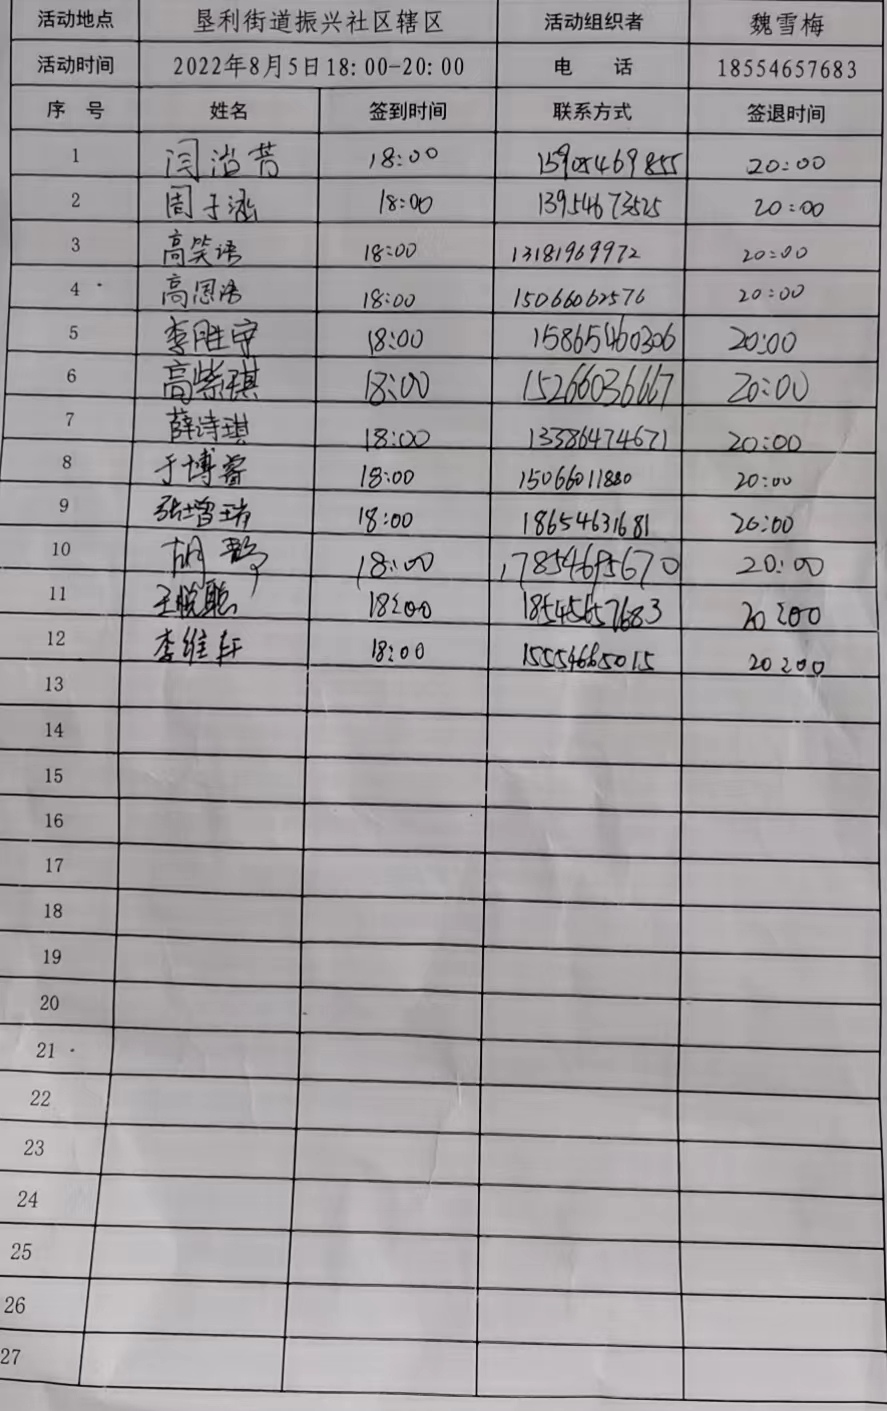 活动地点 垦利街道振兴社区辖区 活动组织者 魏雪梅
活动时间 2022年8月5日18:00-20:00 电 话 18554657683
序 号 姓名 签到时间 联系方式 签退时间
1 闫 18:00 15905469855 20:00
2 周子涵 18:00 13954673525 20:00
3 高笑语 18:00 13181969972 20:00
4 高恩浩 18:00 15066062576 20:00
5 李胜宇 18:00 15865460306 20:00
6 高紫琪 18:00 15266036667 20:00
7 薛诗琪 18:00 13386474671 20:00
8 于博睿 18:00 15066011880 20:00
9 张增瑞 18:00 18654631681 20:00
10 胡 18:00 17854695670 20:00
11 王悦聪 18:00 18545657683 20:00
12 李维轩 18:00 15554665015 20:00
13
14
15
16
17
18
19
20
21
22
23
24
25
26
27